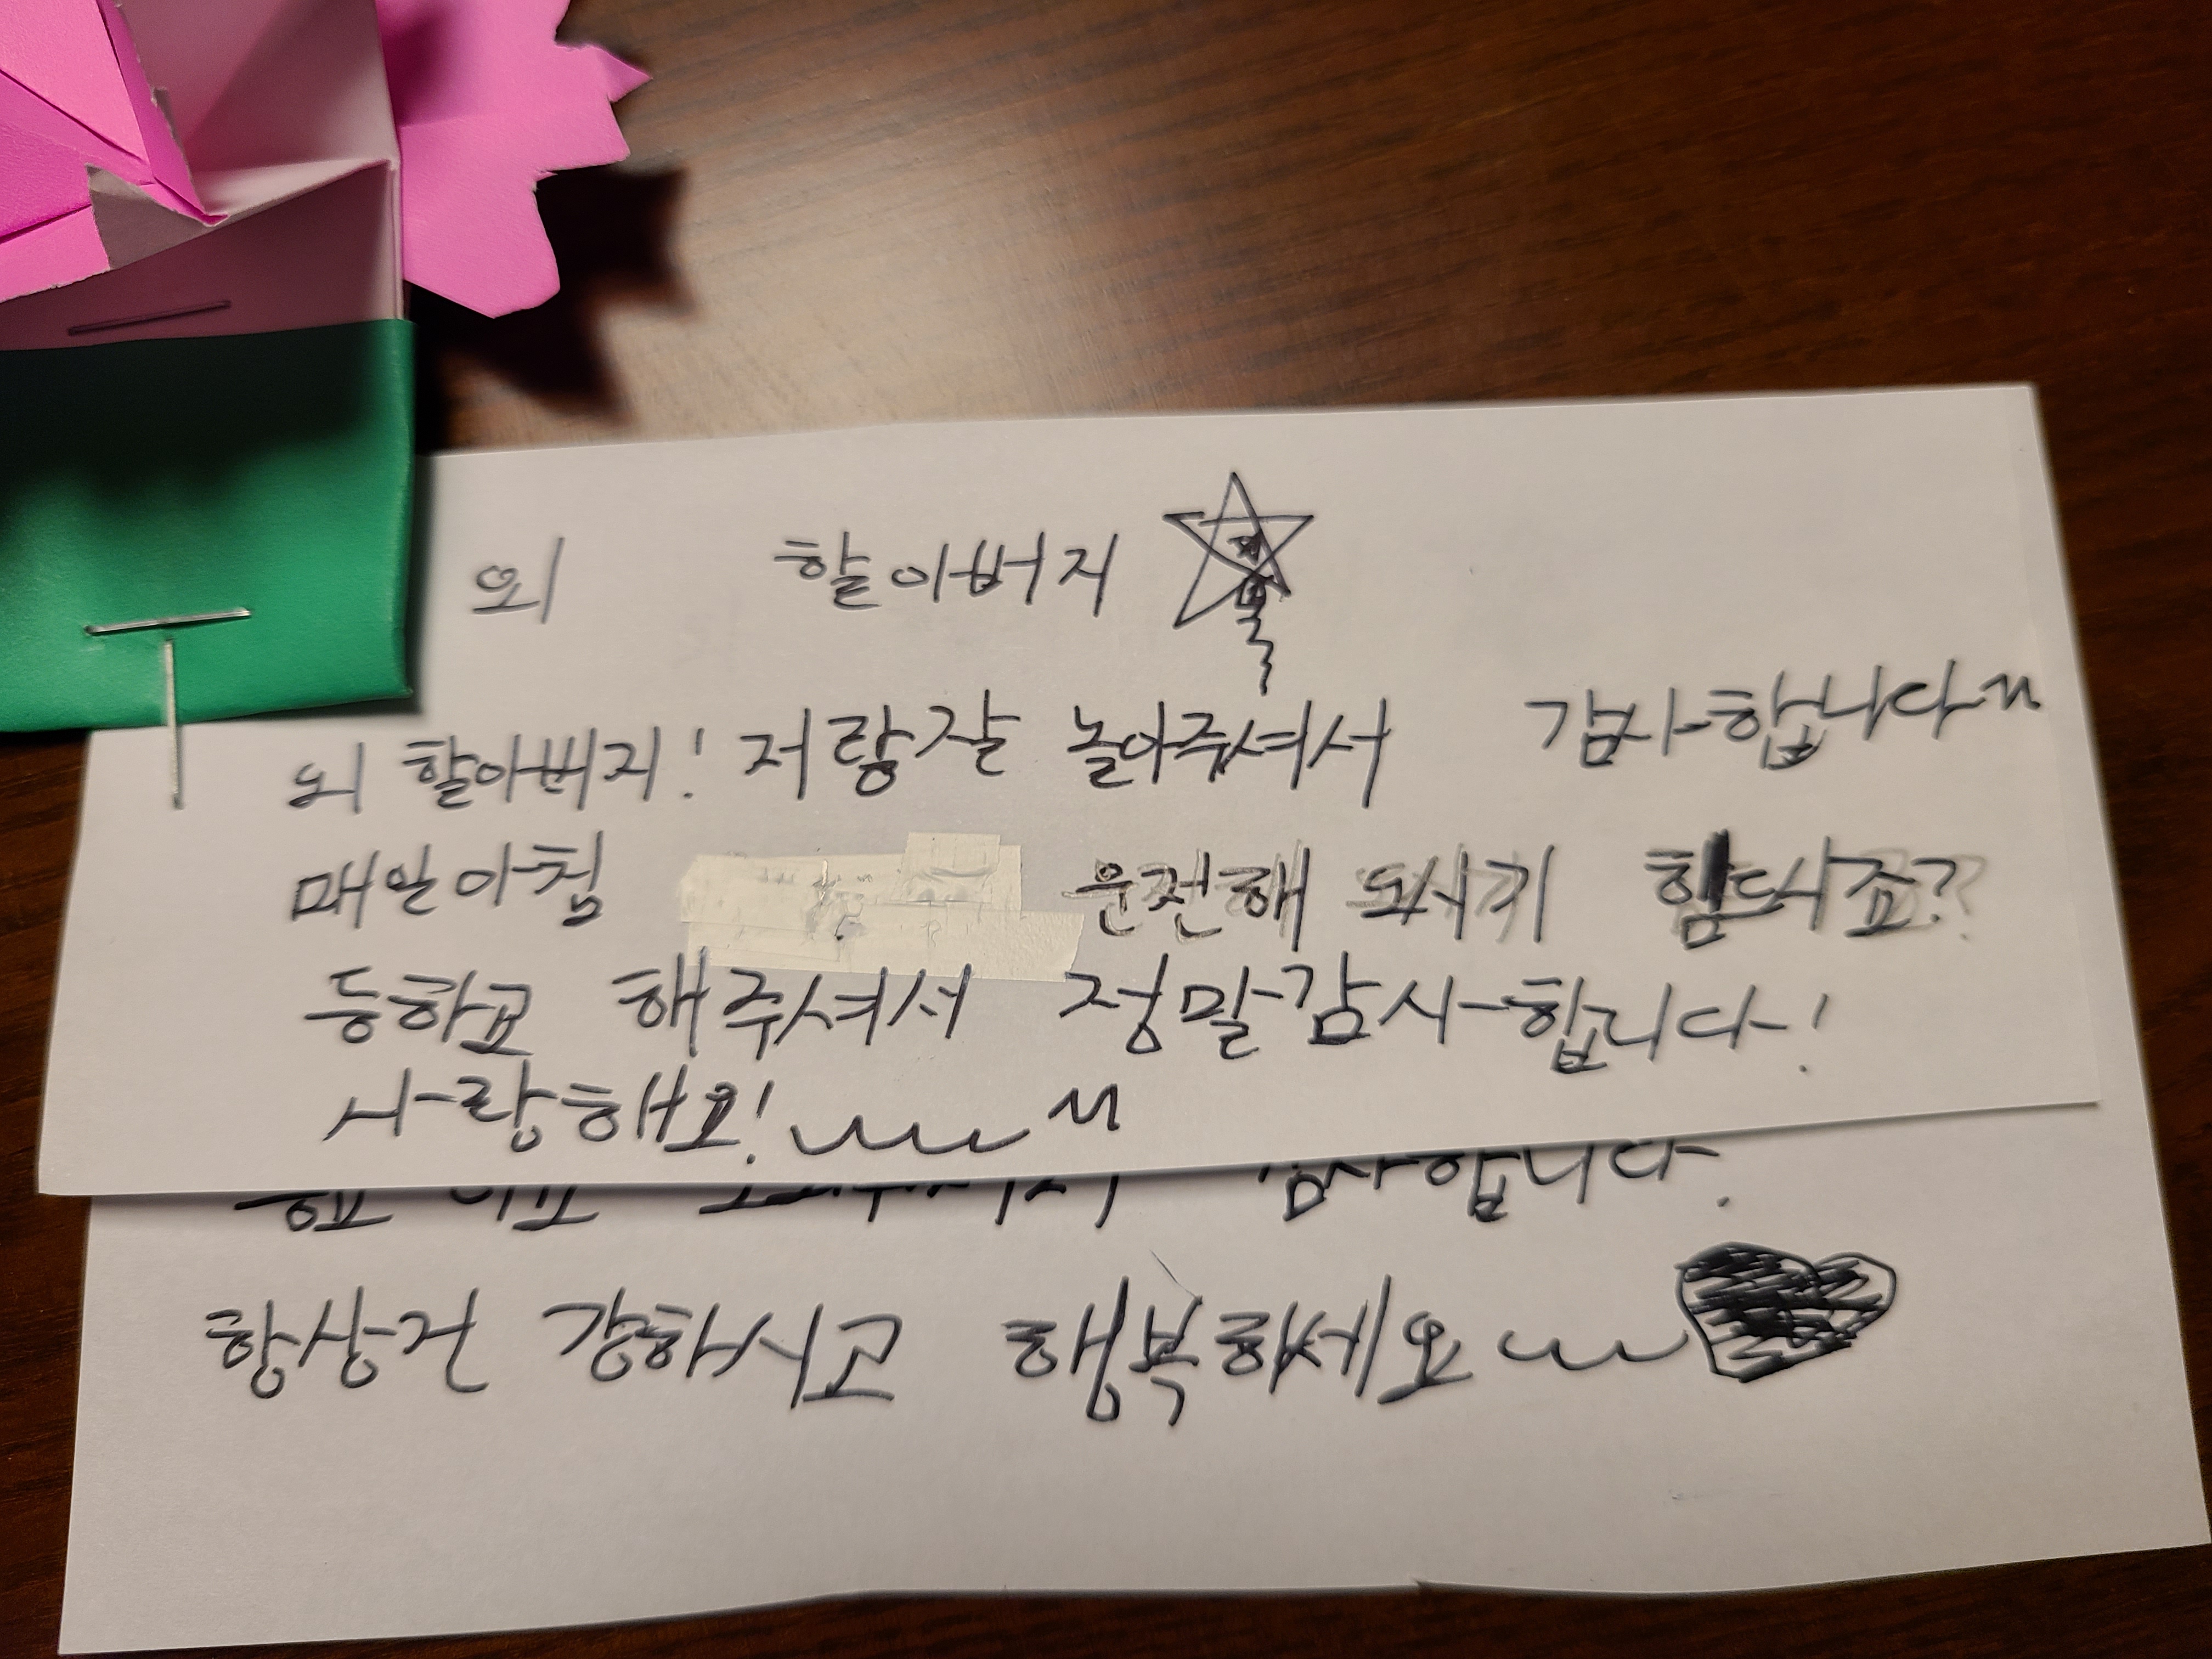 외 할아버지
외 할아버지! 저랑잘 놀아주셔서 감사합니다^^
매일아침 운전해 힘드시죠?
등하교 해주셔서 정말감사합니다!
사랑해요!~~~^^
감사합니다.
항상건 강하시고 행복하세요~~